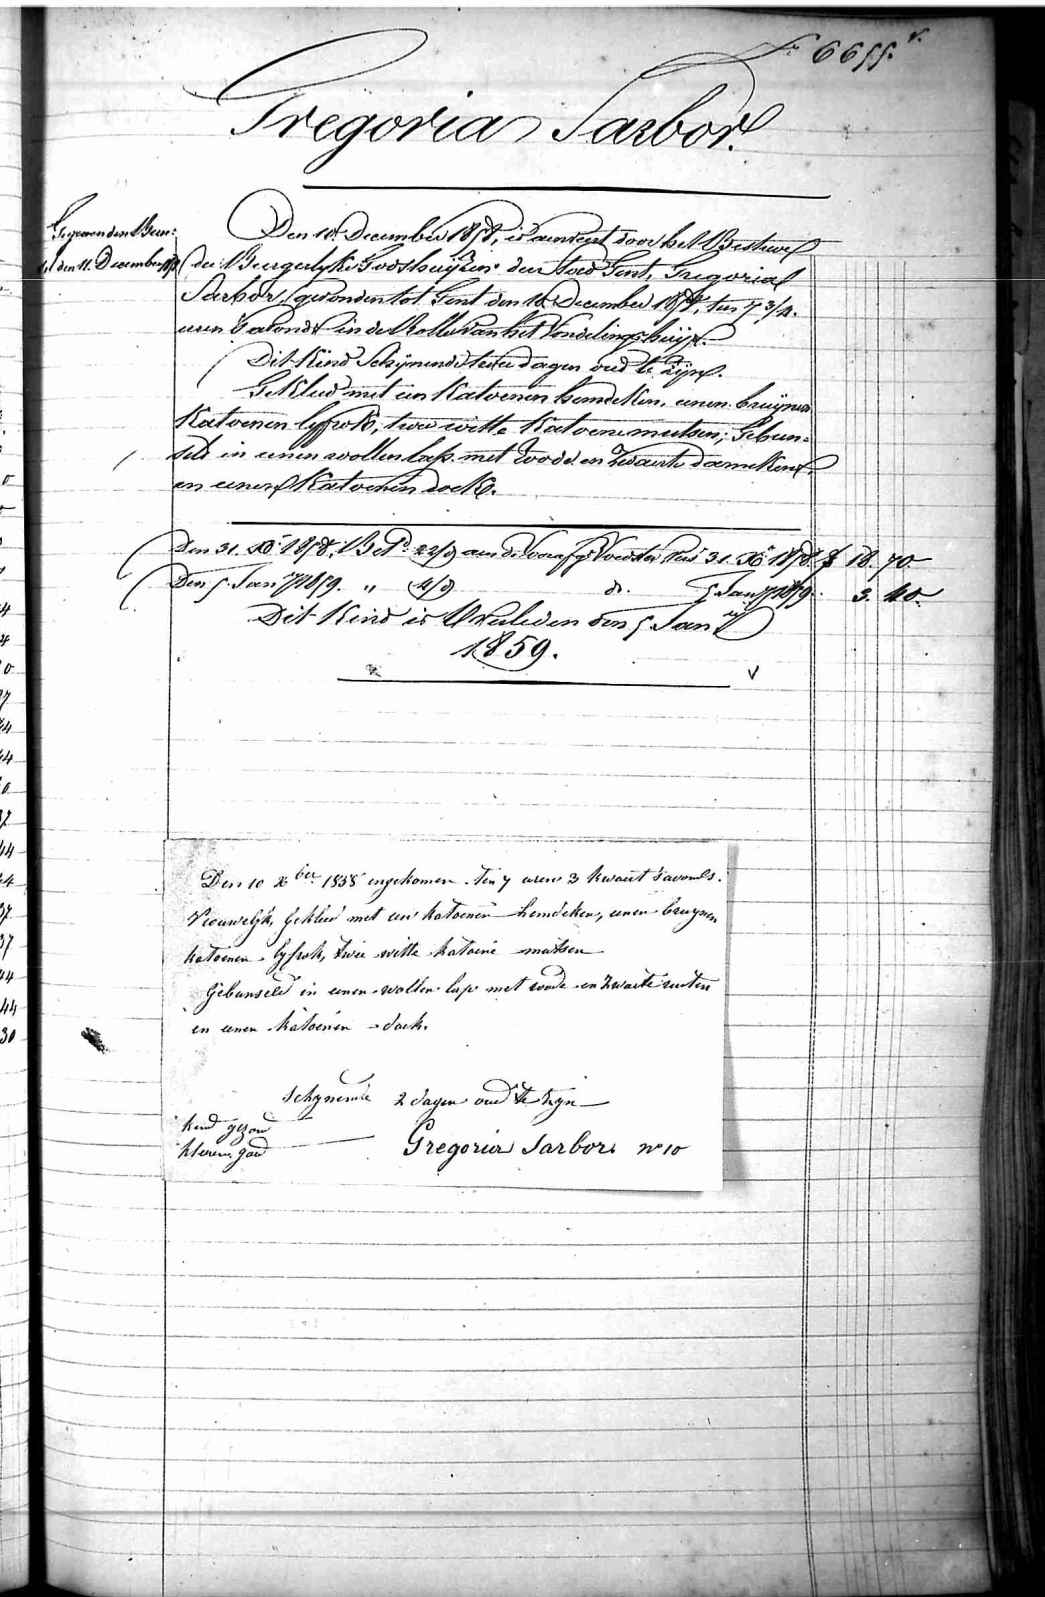 6655.
Gregoria Sarbor.
den 11. December
Den 10. December 1858, is aenveird door het Bestuur
der Burgerlyke Godshuijzen der stad Gent, Gregoria
Sarbor, gevonden tot Gent den 10 December 1858, ten 7 3/4.
uren 's avonds in de Rolle van het Vondelingshuijs.
Dit Kind schijnende twee dagen oud te zijn.
Gekleed met een Katoenen hemdeken, eenen bruijnen
Katoenen lyfrok, twee witte Katoene mutsen; Gebun-
seld in eenen wollen lap met roode en zwarte
en eenen Katoenen doek.
Den 31. Xber 1858, 22/9 aen de Voedster 31. Xber 1858. f 18. 70
Den 5 Jany 1859. " 4/8 do. 5 Jany 1859. 3. 40.
Dit Kind is Overleden den 5 Jany
1859.
Den 10 Xber 1858 ingekomen ten 7 uren 3 kwaert s'avonds.
Vrouwelijk, gekleed met een katoenen hemdeken, eenen bruynen
katoenen lyfrok, twee witte katoene mutsen
Gebunseld in eenen wollen lap met roode en zwarte ruiten
en eenen katoenen doek.
schynende 2 dagen oud te zyn
kind gezond
kleeren goed Gregoria Sarbor n° 10